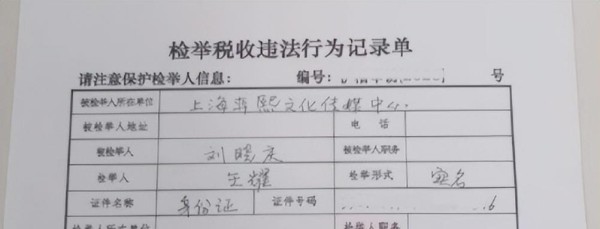 检举税收违法行为记录单
请注意保护检举人信息： 编号： 号
被检举人所在单位 上海 熙文化传媒中心.
被检举人地址 电话
被检举人 刘晓庆 被检举人职务
检举人 王耀 检举形式 实名
证件名称 身份证 证件号码 6
检举人所在单位 检举人职务